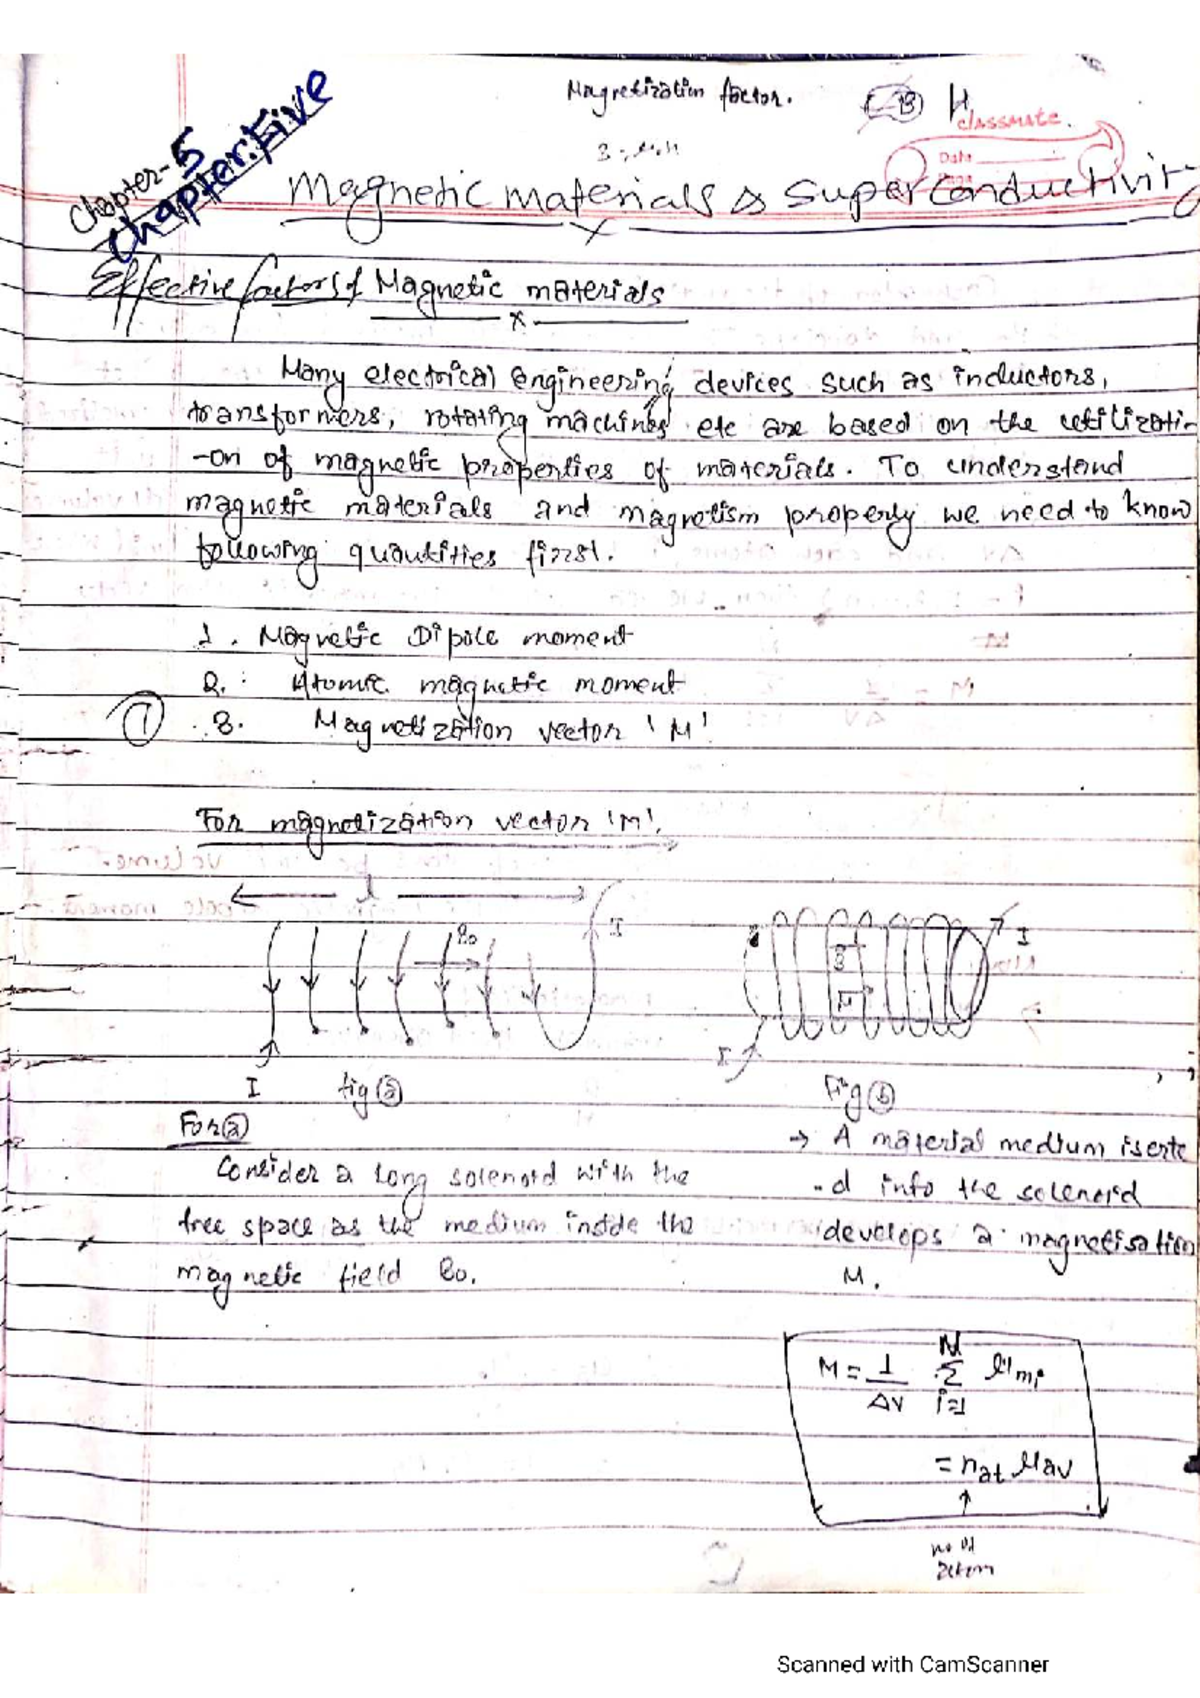 Magnetization factor.
B H
classmate
Date
Page
B = μ.H
Chapter-5
Chapter: Five
Magnetic materials & Superconductivity
Effective factors of Magnetic materials
Many electrical engineering devices such as inductors,
transformers, rotating machines etc are based on the utilizati
-on of magnetic properties of materials. To understand
magnetic materials and magnetism property we need to know
following quantities first.
1. Magnetic Dipole moment
2. Atomic magnetic moment
① 3. Magnetization vector 'M'.
For magnetization vector 'M'.
l
B₀ I
I
I fig ⓐ
I Fig ⓑ
For ⓐ
Consider a long solenoid with the
free space as the medium inside the
magnetic field B₀.
→ A material medium iserte
-d info the solenoid
develops a magnetisation
M.
M = 1/ΔV N Σ i=1 μmi
= nat μav
↑
no of
atom
Scanned with CamScanner